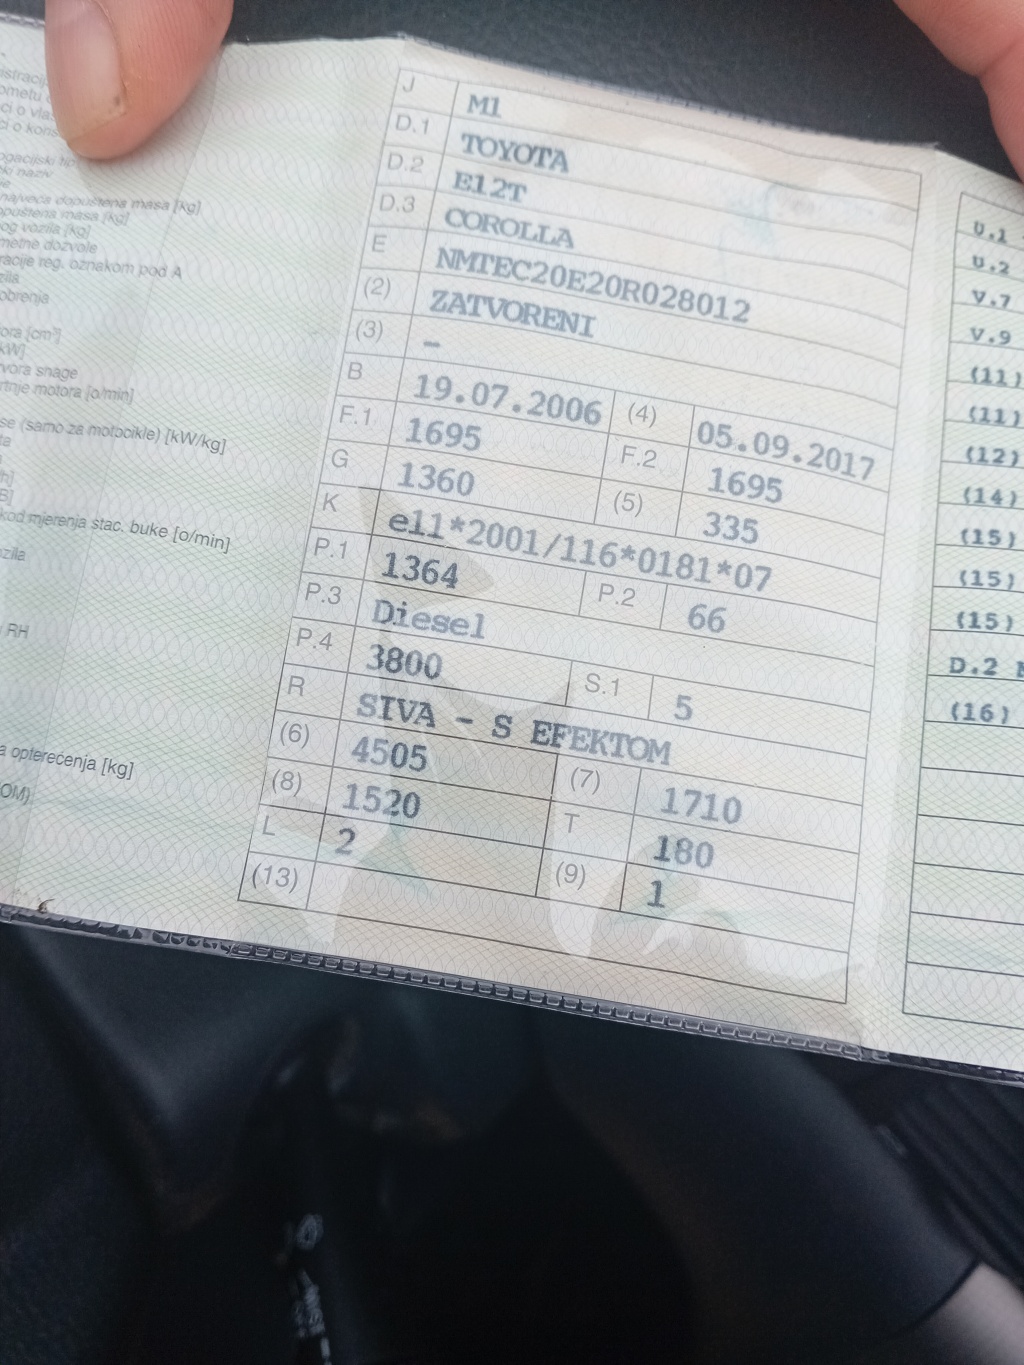 ometu
najveća dopuštena masa [kg]
og vozila [kg]
metne dozvole
racije reg. oznakom pod A
obrenja
ora [cm³]
kW]
vora snage
rtnje motora [o/min]
se (samo za motocikle) [kW/kg]
kod mjerenja stac. buke [o/min]
zila
RH
a opterećenja [kg]
OM)
J M1
D.1 TOYOTA
D.2 E12T
D.3 COROLLA
E NMTEC20E20R028012
(2) ZATVORENI
(3) –
B 19.07.2006 (4) 05.09.2017
F.1 1695 F.2 1695
G 1360 (5) 335
K e11*2001/116*0181*07
P.1 1364 P.2 66
P.3 Diesel
P.4 3800 S.1 5
R SIVA - S EFEKTOM
(6) 4505 (7) 1710
(8) 1520 T 180
L 2 (9) 1
(13)
U.1
U.2
V.7
V.9
(11)
(11)
(12)
(14)
(15)
(15)
(15)
D.2
(16)